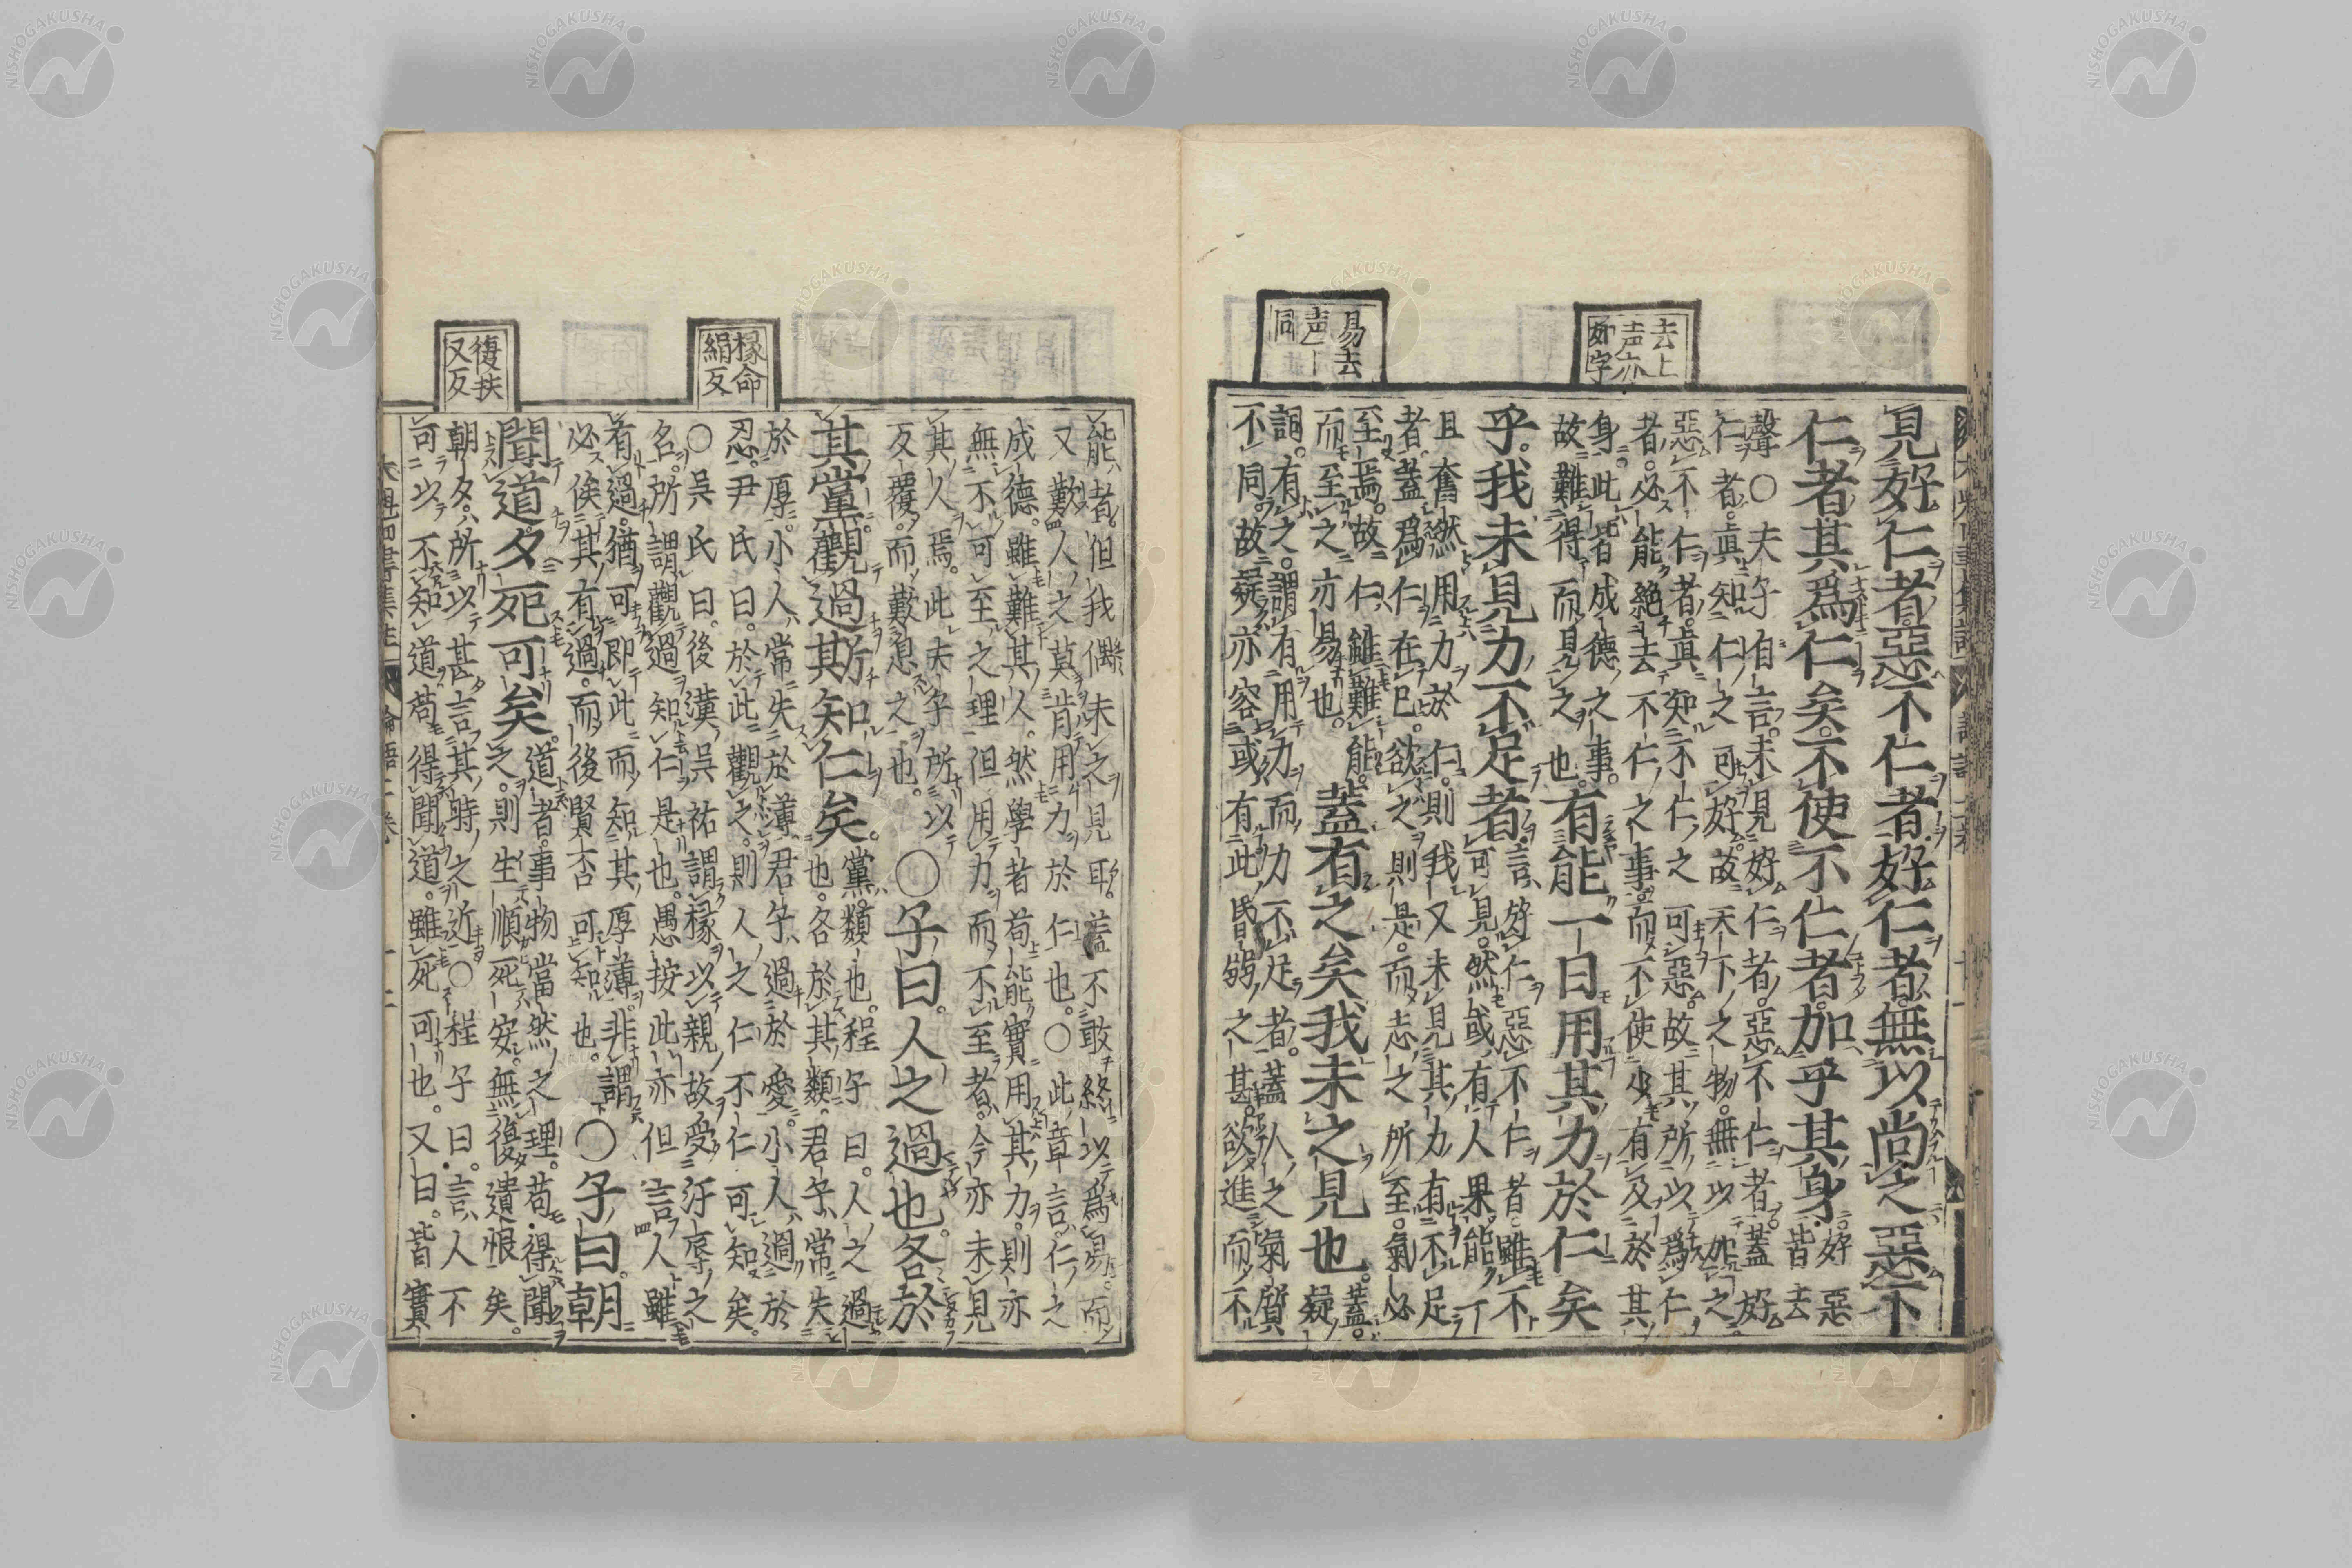 去上
声亦
如字
易去
声
同
見好仁者惡不仁者好仁者無以尚之惡不
仁者其爲仁矣不使不仁者加乎其身好惡
皆去
聲○夫子自言未見好仁者惡不仁者蓋好
仁者眞知仁之可好故天下之物無以加之
惡不仁者眞知不仁之可惡故其所以爲仁
者必能絶去不仁之事而不使少有及於其
身此皆成德之事
故難得而見之也有能一日用其力於仁矣
乎我未見力不足者言好仁惡不仁者雖不
可見然或有人果能一
且奮然用力於仁則我又未見其力有不足
者蓋爲仁在己欲之則是而志之所至氣必
至焉故仁雖難能
而至之亦易也蓋有之矣我未之見也蓋
疑
詞有之謂有用力而力不足者蓋人之氣質
不同故疑亦容或有此昏弱之甚欲進而不
椽命
絹反
復扶
又反
能者但我偶未之見耳蓋不敢終以爲易而
又歎人之莫肯用力於仁也○此章言仁之
成德雖難其人然學者苟能實用其力則亦
無不可至之理但用力而不至者今亦未見
其人焉此夫子所以
反覆而歎息之也○子曰人之過也各於
其黨觀過斯知仁矣黨類也程子曰人之過
也各於其類君子常失
於厚小人常失於薄君子過於愛小人過於
忍尹氏曰於此觀之則人之仁不仁可知矣
○吳氏曰後漢吳祐謂椽以親故受汙辱之
名所謂觀過知仁是也愚按此亦但言人雖
有過猶可即此而知其厚薄非謂
必俟其有過而後賢否可知也○子曰朝
聞道夕死可矣道者事物當然之理苟得聞
之則生順死安無復遺恨矣
朝夕所以甚言其時之近○程子曰言人不
可以不知道苟得聞道雖死可也又曰皆實